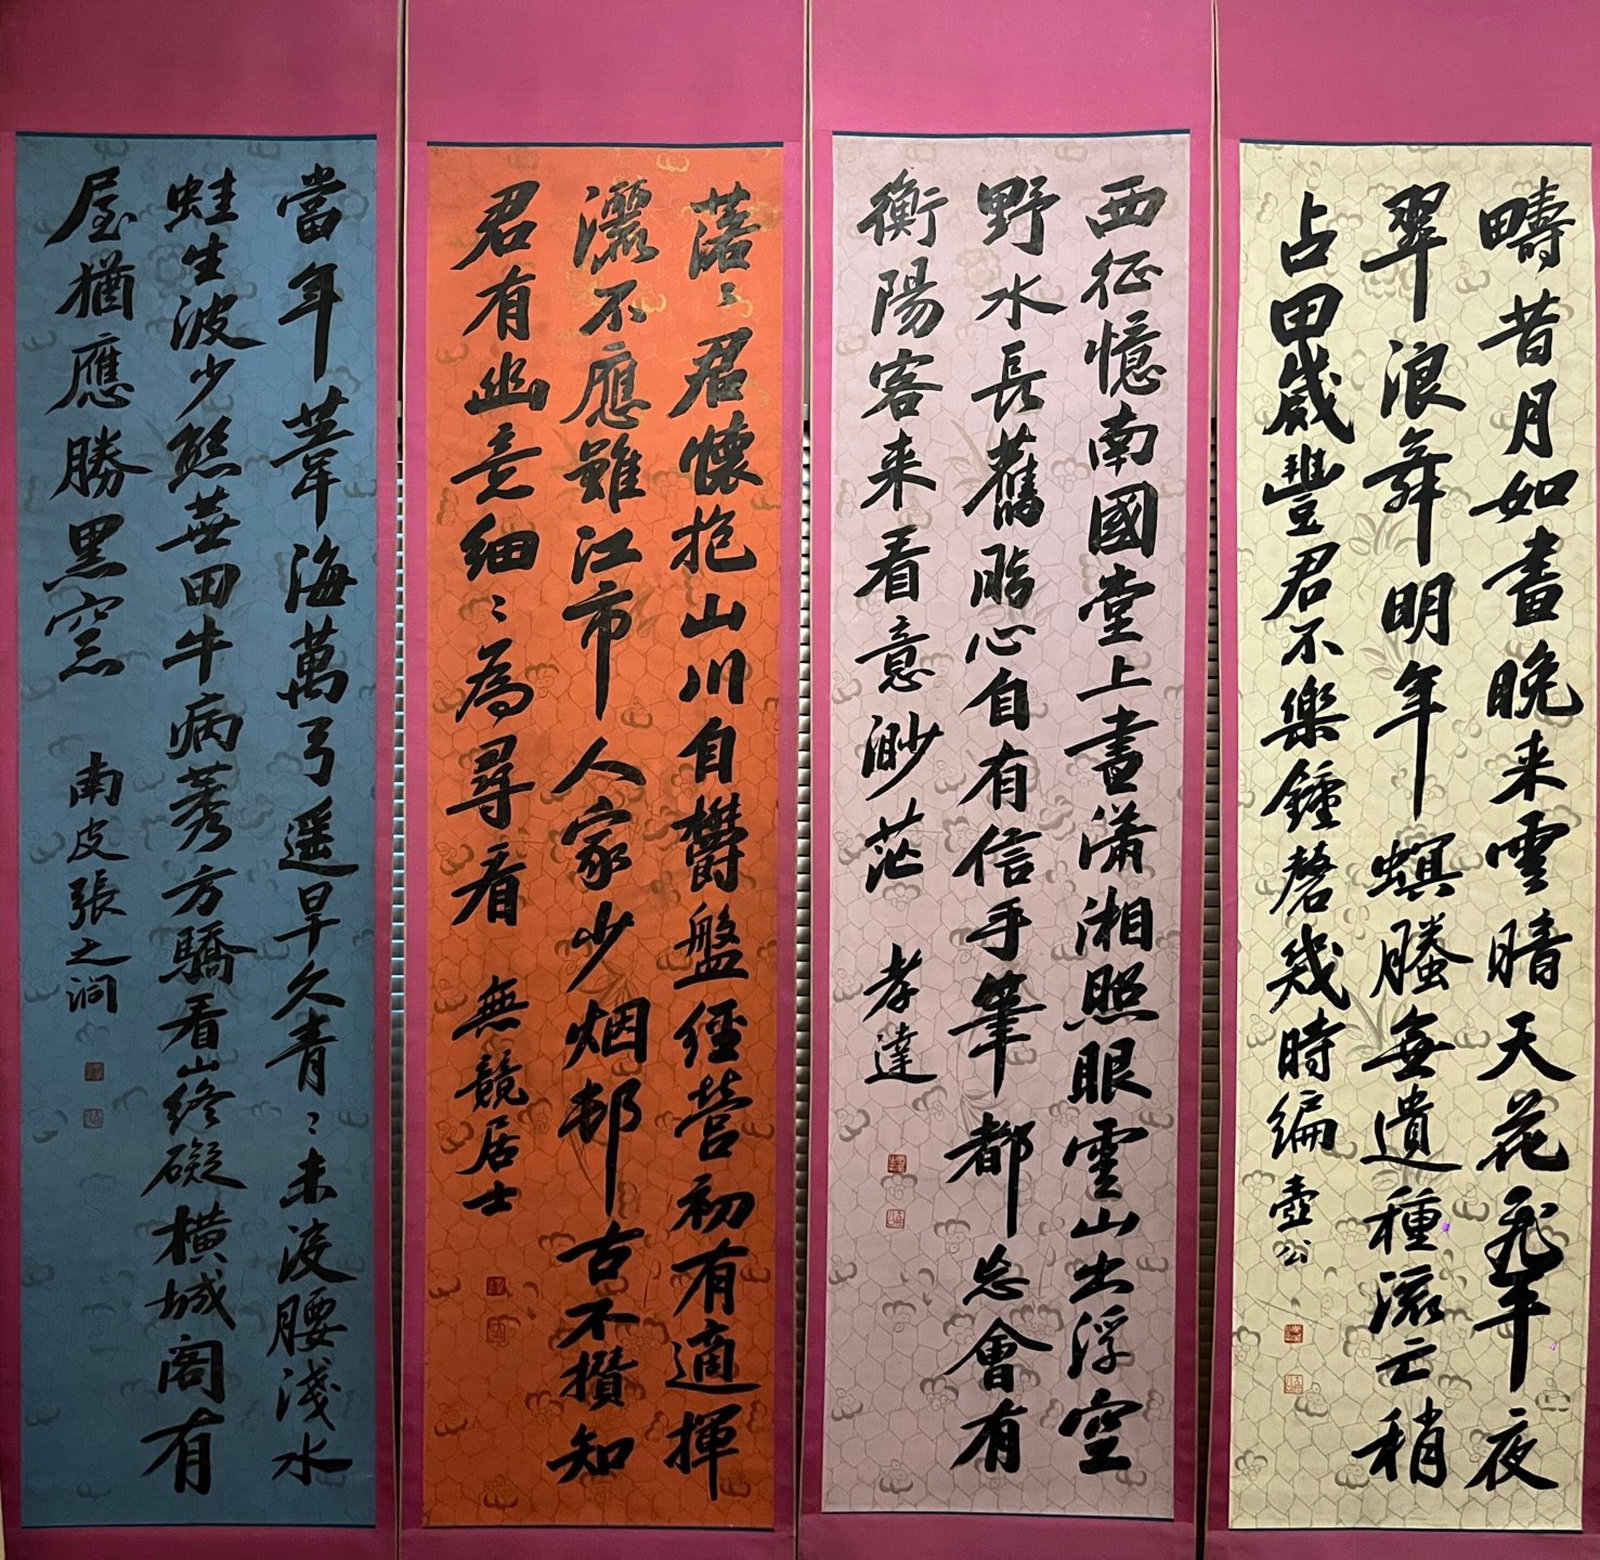 疇昔月如晝晚来雲暗天花飛半夜
翠浪舞明年螟螣無遺種流亡稍
占田歲豐君不樂鍾磬幾時編 壺公
西征憶南國堂上畫瀟湘照眼雲山出浮空
野水長舊游心自有信手筆都忘會有
衡陽客来看意渺茫 孝達
落〻君懷抱山川自鬱盤經營初有適揮
灑不應難江市人家少烟邨古木攢知
君有幽意細〻為尋看 無競居士
當年葦海萬弓遥旱久青〻未沒腰淺水
蛙生波少態蕪田牛病莠方驕看山終礙橫城閣有
屋猶應勝黑窯 南皮張之洞